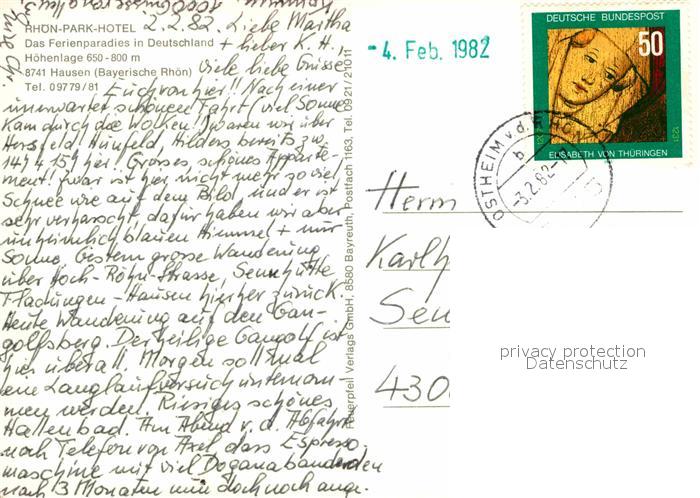 RHÖN-PARK-HOTEL 2.2.82. Liebe Martha
Das Ferienparadies in Deutschland + lieber K. H.!
Höhenlage 650-800 m Viele liebe Grüsse
8741 Hausen (Bayerische Rhön)
Tel. 09779/81 Euch von hier!! Nach einer
unerwartet schönen Fahrt (viel Sonne
kam durch die Wolken!) waren wir über
Hersfeld Hünfeld, Hilders bereits zw.
14 + 15h hier! Grosses, schönes Apparte-
ment! Zwar ist hier nicht mehr so viel
Schnee wie auf dem Bild und er ist
sehr verharscht, dafür haben wir aber
unheimlich blauen Himmel + nur
Sonne. Gestern grosse Wanderung
über Hoch-Röhn-Strasse, Sennhütte
Fladungen - Hausen hierher zurück.
Heute Wanderung auf den Gan-
golfsberg. Der heilige Gangolf ist
hier überall. Morgen soll mal
eine Langlaufversuch unternom-
men werden. Riesiges schönes
Hallenbad. Am Abend v. d. Abfahrt
noch Telefon von Axel, dass Espresso-
maschine mit viel
nach 3 Monaten nun doch noch ange-
Peuerpfeil Verlags GmbH, 8580 Bayreuth, Postfach 1163, Tel. 0921/21011
-4. Feb. 1982
DEUTSCHE BUNDESPOST
50
1231
ELISABETH VON THÜRINGEN
OSTHEIM v.d. RHÖN
b
-3.2.82-17
Herrn
Karlh
Sen
430
privacy protection
Datenschutz